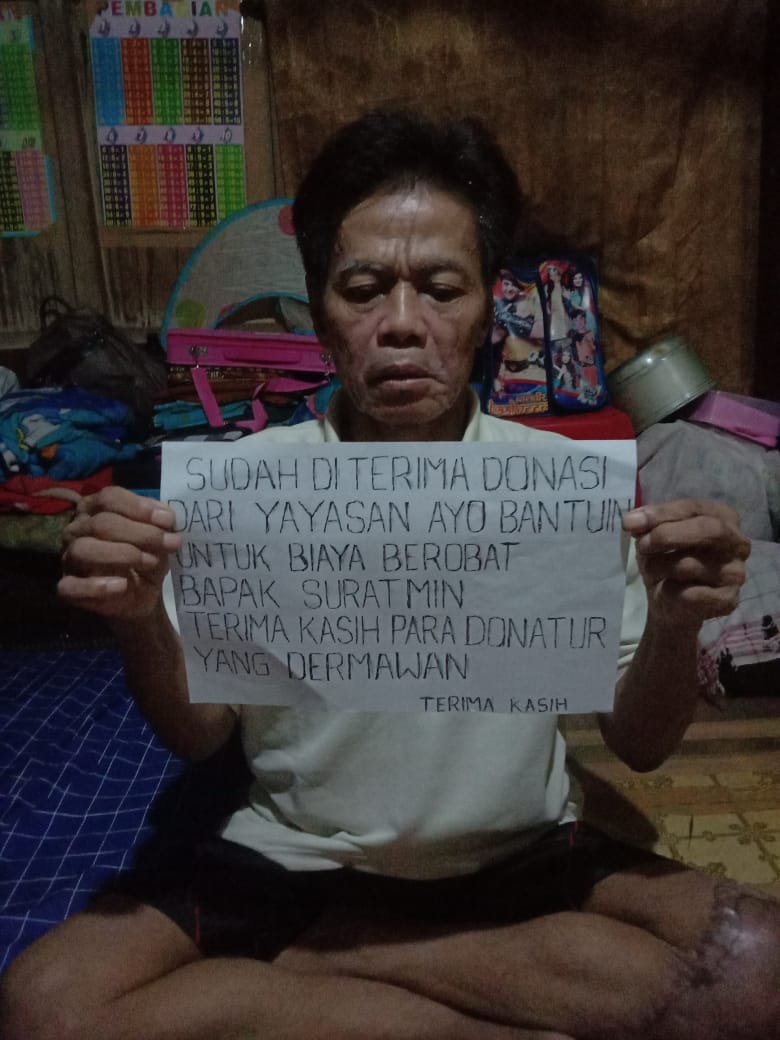 PEMBAGIAN
SUDAH DI TERIMA DONASI
DARI YAYASAN AYO BANTUIN
UNTUK BIAYA BEROBAT
BAPAK SURATMIN
TERIMA KASIH PARA DONATUR
YANG DERMAWAN
TERIMA KASIH